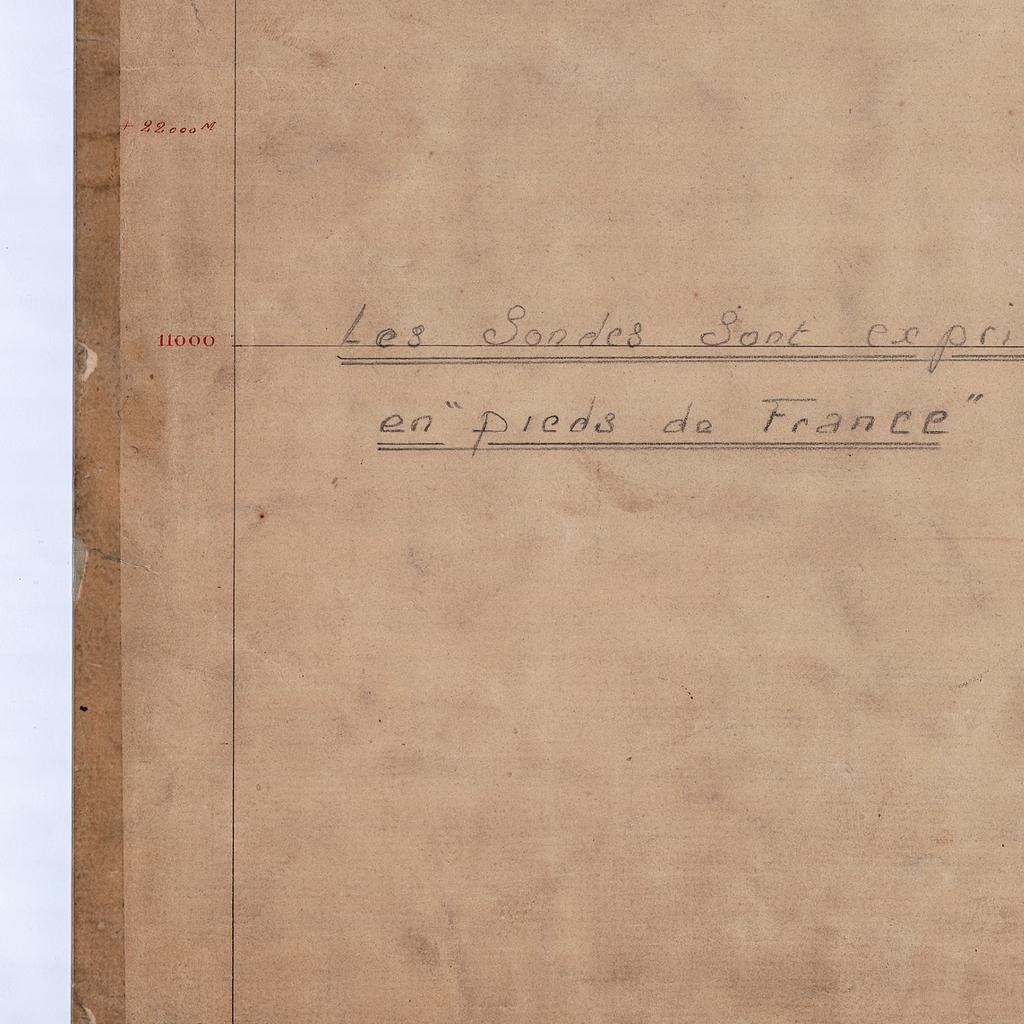 + 22000 M
11000
Les Sondes Sont expri
en "pieds de France"